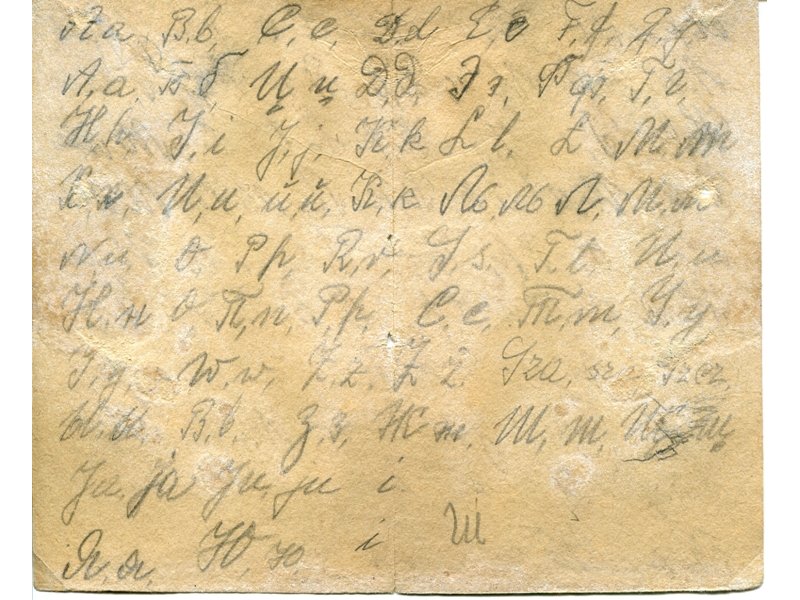 A a B, b, C, c, D, d E, e F, f, G, g
А, а, Б б Ц ц Д, д, Э э, Ф ф, Г, г,
H, h J, i J, j, K, k L l, Ł M, m
Х, х, И, и, й, й, К, к Ль, ль Л, М, м
N, n O, P p, R, r, S, s. T, t, U, u
Н, н О П, п, Р, р, С, с, Т, т, У, у
Y, y, W, w, Z, z, Ż ż. Sza, sza szcz
Ы, ы, В, в, З, з, Ж ж, Ш, ш, Щ щ
Ja, ja Ju, ju i
Я, я, Ю, ю, і Ш